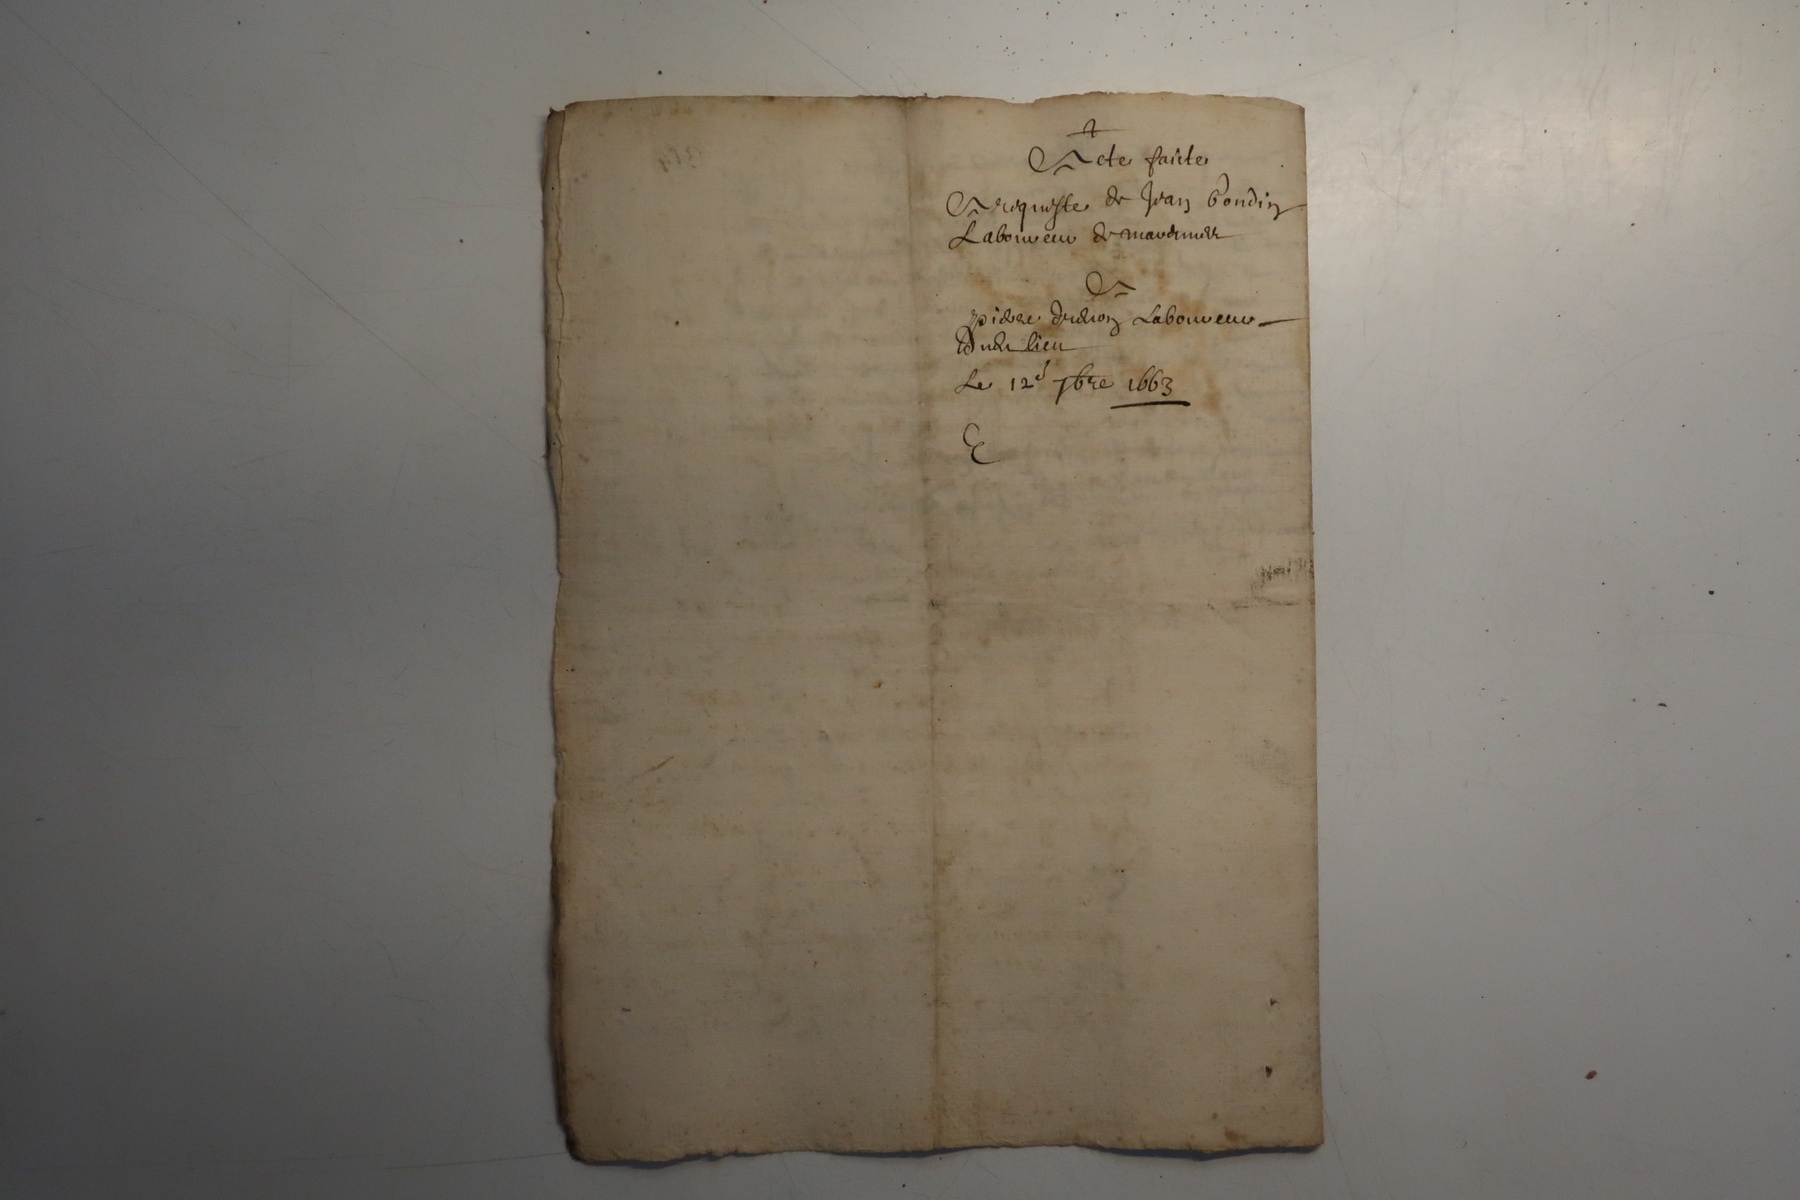 Acte faicte
A requeste de Jean bondin
Laboureur de
A
pierre Laboureur
dudt lieu
Le 12e 7bre 1663